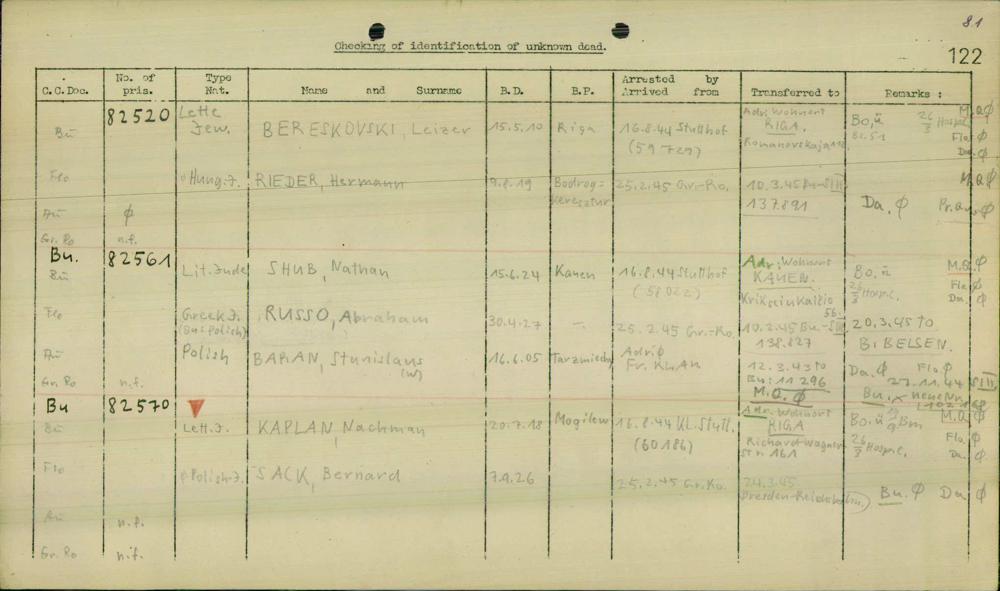 81
122
Checking of identification of unknown dead.
C.C.Doc. No. of pris. Type Nat. Name and Surname B.D. B.P. Arrested by Arrived from Transferred to Remarks :
82520 Lette Adr. Wohnort M.Q.Ø
Bu Jew. BERESKOVSKI, Leizer 15.5.10 Riga 16.8.44 Stutthof RIGA. Bo.ü 26/3 Hospr. Flo.Ø
(59729) Romanovskaja Da.Ø
Flo Hung.J. RIEDER, Hermann 9.8.19 Bodrog= 25.2.45 Gr.-Ro. 10.3.45 Bu-SIII M.Q.Ø
keresztur 137891 Da. Ø
Au Ø
Gr. Ro n.f.
Bu. 82561 Adr. Wohnort
Bu Lit.Jude SHUB, Nathan 15.6.24 Kauen 16.8.44 Stutthof KAUEN. Bo.ü M.Q.Ø
(58022) 26/3 Hospr. Flo.Ø
Da.Ø
56.
Flo Greek J. RUSSO, Abraham 30.4.27 -. 25.2.45 Gr.-Ro. 10.2.45 Bu.-SIII 20.3.45 to
(Bu: Polish) 138827 BIBELSEN.
Au Polish BARAN, Stanislaus 16.6.05 Tarzmiechy Adr:Ø 12.3.43 to Da.Ø Flo.Ø
(W) Fr. KL.AN Bu: 11296 27.11.44 SIII
Gr. Ro n.f. M.Q. Ø Bu. neue Nr.
Bu 82570 Adr. Wohnort M.Q.Ø
Bu Lett.J. KAPLAN, Nachman 20.7.18 Mogilew 16.8.44 KL.Stutt. RIGA Bo.ü Bm
(60186) Richard-Wagner 26/3 Hospr. Flo.Ø
str. 161 Da.Ø
Flo Polish-J. SACK, Bernard 7.9.26 25.2.45 Gr.Ro. 24.3.45
Dresden-Reick Bu.Ø Da Ø
Au n.f.
Gr. Ro n.f.